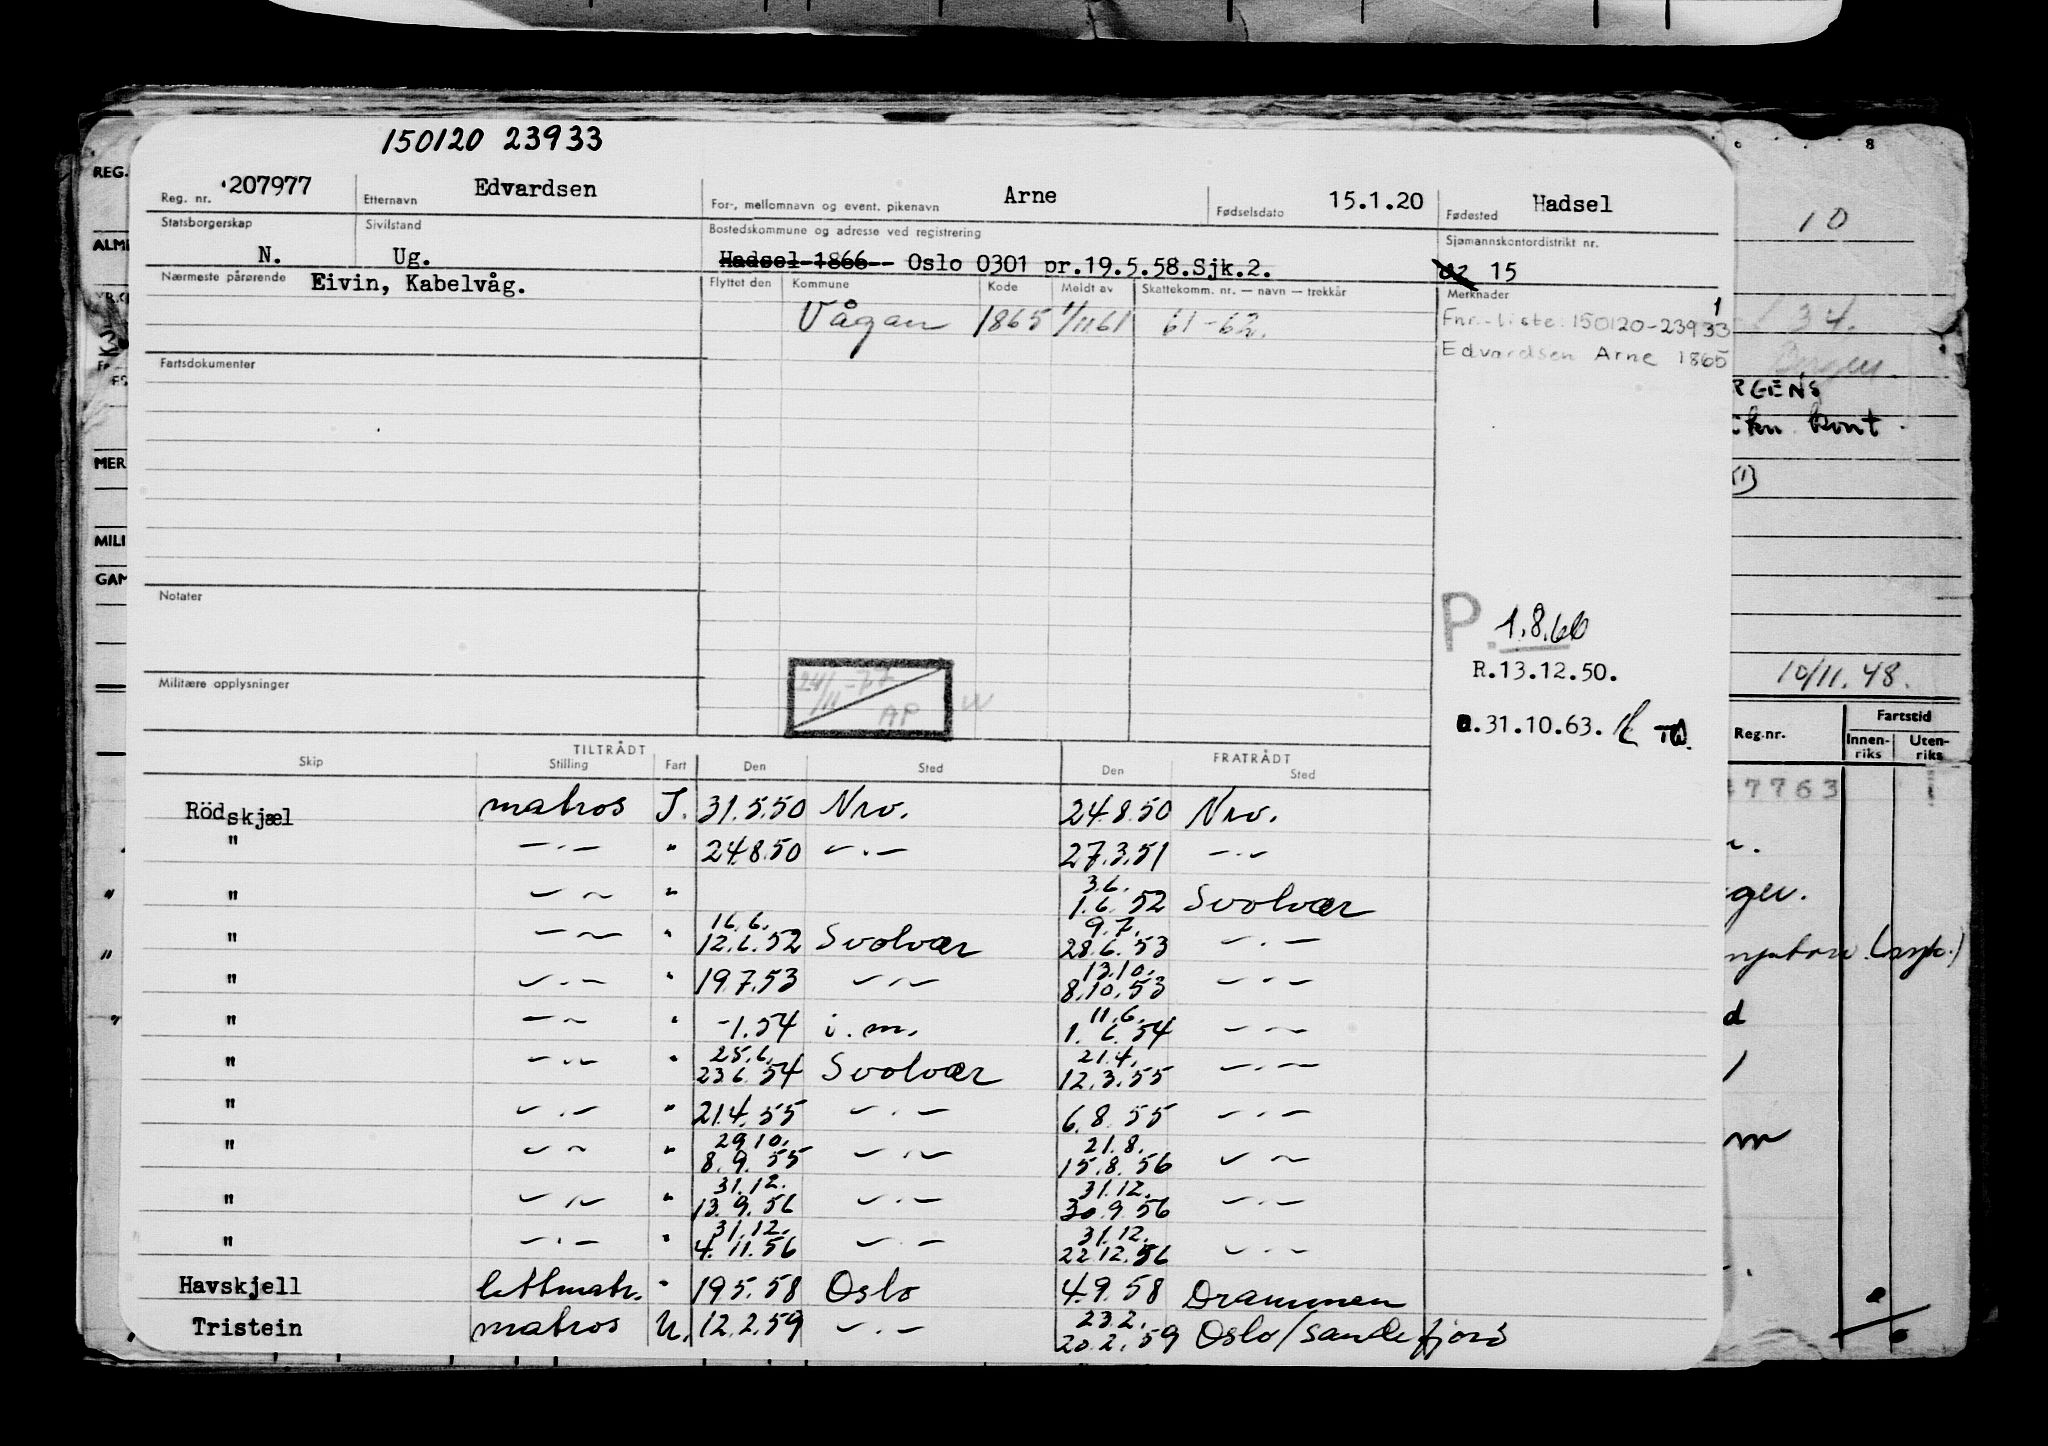 150120 23933
Reg. nr. 207977 Etternavn Edvardsen For-, mellomnavn og event. pikenavn Arne Fødselsdato 15.1.20 Fødested Hadsel
Statsborgerskap N. Sivilstand Ug. Bostedskommune og adresse ved registrering Hadsel 1866 Oslo 0301 pr.19.5.58.Sjk.2. Sjømannskontordistrikt nr. 02 15
Nærmeste pårørende Eivin, Kabelvåg. Flyttet den Kommune Kode Meldt av Skattekomm. nr. — navn — trekkår Merknader 1
Vågan 1865 1/1161 61-62. Fnr-liste: 150120-23933
Edvardsen Arne 1865
Fartsdokumenter
Notater
P. 1.8.66
R.13.12.50.
Militære opplysninger
AP
.31.10.63.
TILTRÅDT FRATRÅDT
Skip Stilling Fart Den Sted Den Sted
Rödskjæl matros I. 31.5.50 Nrv. 24.8.50 Nrv.
" —.— " 24.8.50 —.— 27.3.51 —.—
" — ~ " 3.6. 1.6.52 Svolvær
" — ~ " 16.6. 12.6.52 Svolvær 9.7. 28.6.53 —.—
" —.— " 19.7.53 —.— 13.10. 8.10.53 —.—
" — ~ " -1.54 i.m. 11.6. 1.6.54 —.—
" —.— " 25.6. 23.6.54 Svolvær 21.4. 12.3.55 —.—
" —.— " 21.4.55 —.— 6.8.55 —.—
" — ~ " 29.10. 8.9.55 —.— 21.8. 15.8.56 — ~
" —.— " 31.12. 13.9.56 —.— 31.12. 30.9.56 —.—
" —.— " 31.12. 4.11.56 —.— 31.12. 22.12.56 —.—
Havskjell lettmatr. " 19.5.58 Oslo 4.9.58 Drammen
Tristein matros U. 12.2.59 —.— 23.2. 20.2.59 Oslo/Sandefjord
REG.
ALM
MER
MILI
GAM
8
10
34.
Bergen
RGENS
kont.
10/11.48.
Reg.nr. Fartstid
Innen-riks Uten-riks
7763